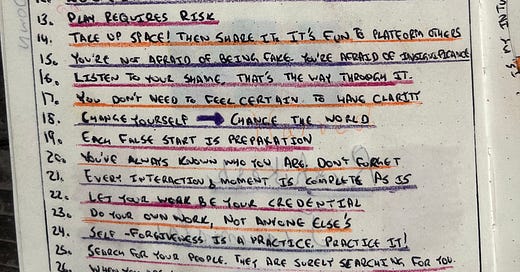 13. PLAY REQUIRES RISK
14. TAKE UP SPACE! THEN SHARE IT. IT'S FUN TO PLATFORM OTHERS
15. YOU'RE NOT AFRAID OF BEING FAKE. YOU'RE AFRAID OF INSIGNIFICANCE
16. LISTEN TO YOUR SHAME. THAT'S THE WAY THROUGH IT.
17. YOU DON'T NEED TO FEEL CERTAIN. TO HAVE CLARITY
18. CHANGE YOURSELF → CHANGE THE WORLD
19. EACH FALSE START IS PREPARATION
20. YOU'VE ALWAYS KNOWN WHO YOU ARE. DON'T FORGET
21. EVERY INTERACTION & MOMENT IS COMPLETE AS IS
22. LET YOUR WORK BE YOUR CREDENTIAL
23. DO YOUR OWN WORK, NOT ANYONE ELSE'S
24. SELF-FORGIVENESS IS A PRACTICE. PRACTICE IT!
25. SEARCH FOR YOUR PEOPLE. THEY ARE SURELY SEARCHING FOR YOU.
26. WHEN YOU